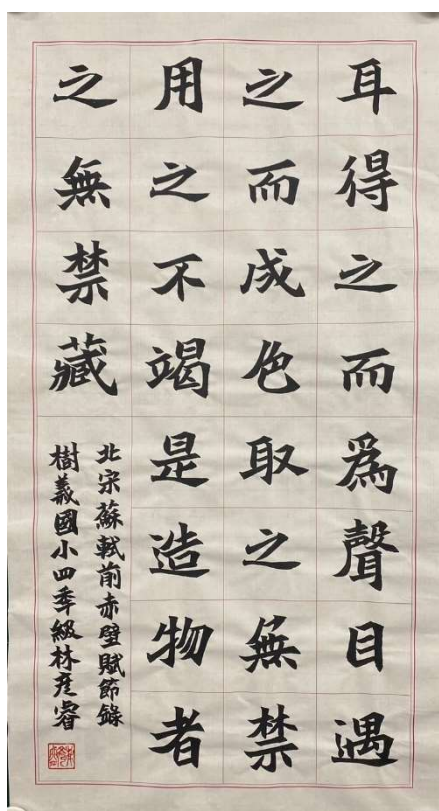 耳得之而爲聲目遇
之而成色取之無禁
用之不竭是造物者
之無禁藏
北宋蘇軾前赤壁賦節錄
樹義國小四秊級林彦睿